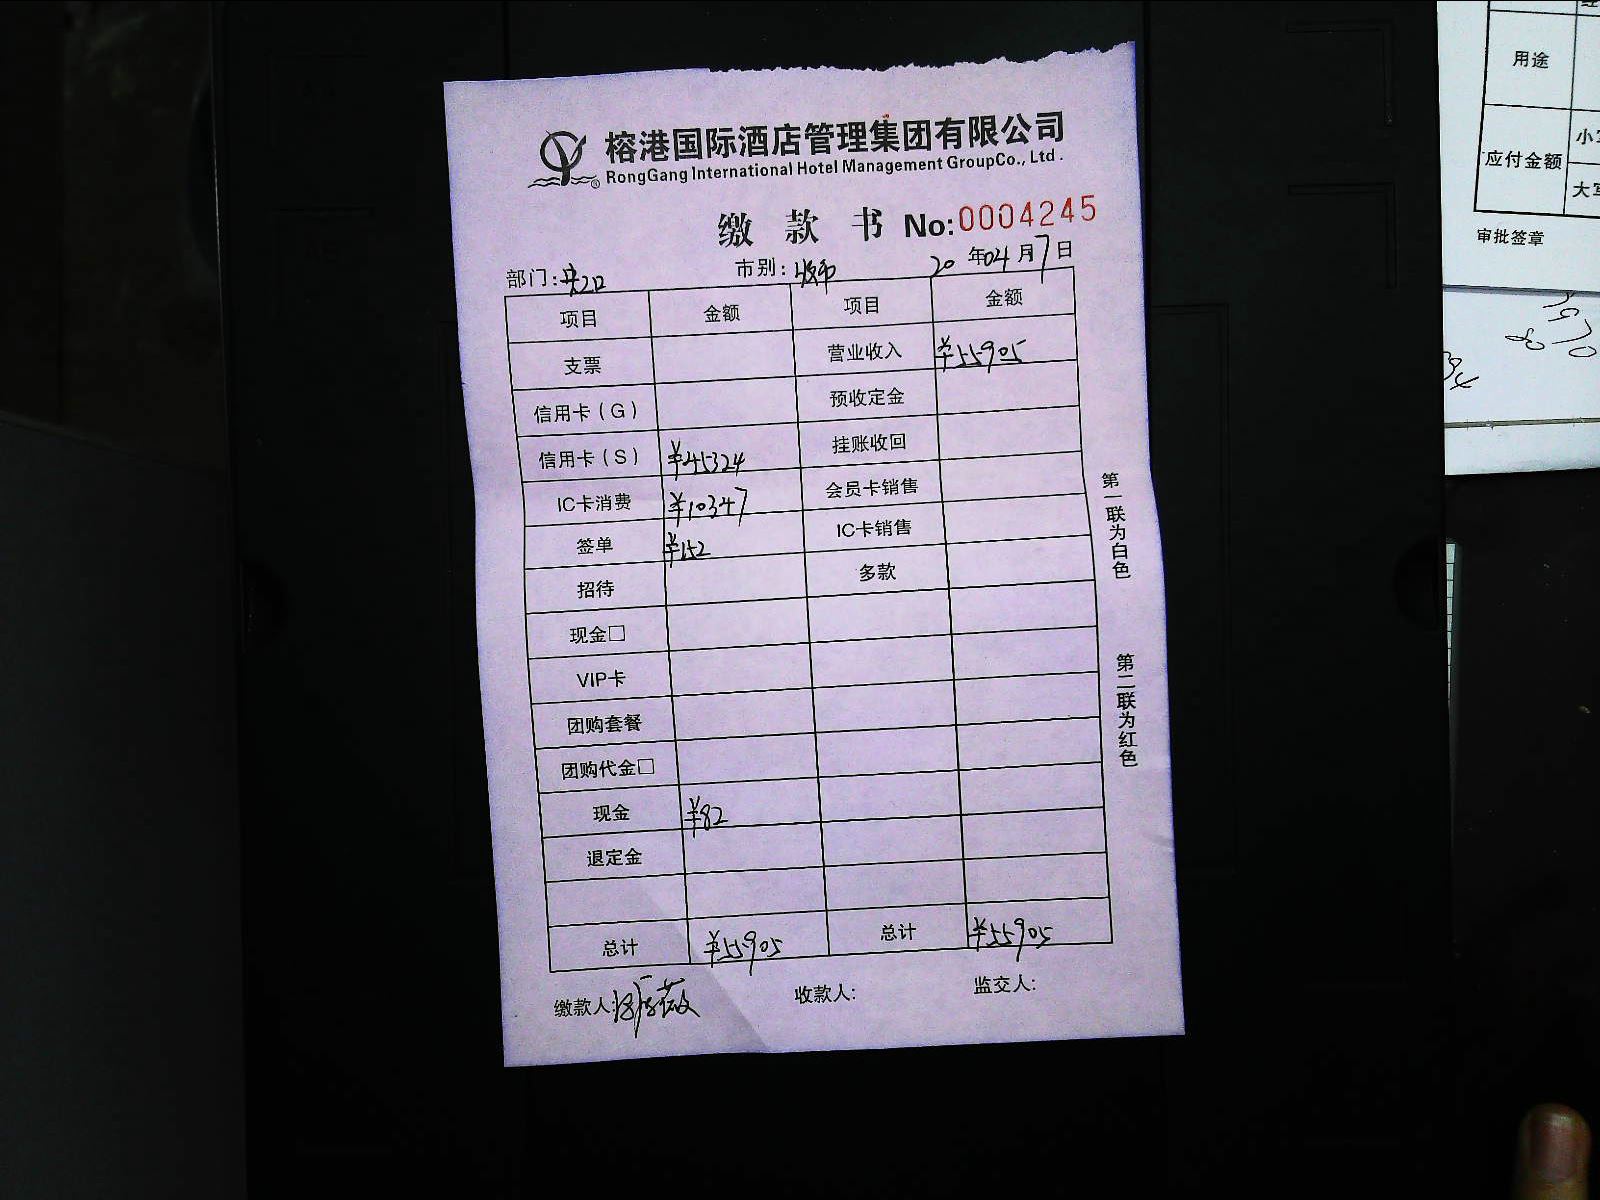 榕港国际酒店管理集团有限公司
RongGang International Hotel Management GroupCo., Ltd.
缴款书 No:0004245
部门: 市别: 20年04月7日
项目 金额 项目 金额
支票 营业收入 ¥55905
信用卡(G) 预收定金
信用卡(S) ¥45324 挂账收回
IC卡消费 ¥10347 会员卡销售
签单 ¥152 IC卡销售
招待 多款
现金□
VIP卡
团购套餐
团购代金□
现金 ¥82
退定金
总计 ¥55905 总计 ¥55905
缴款人: 收款人: 监交人:
第一联为白色
第二联为红色
用途
应付金额
小写
大写
审批签章